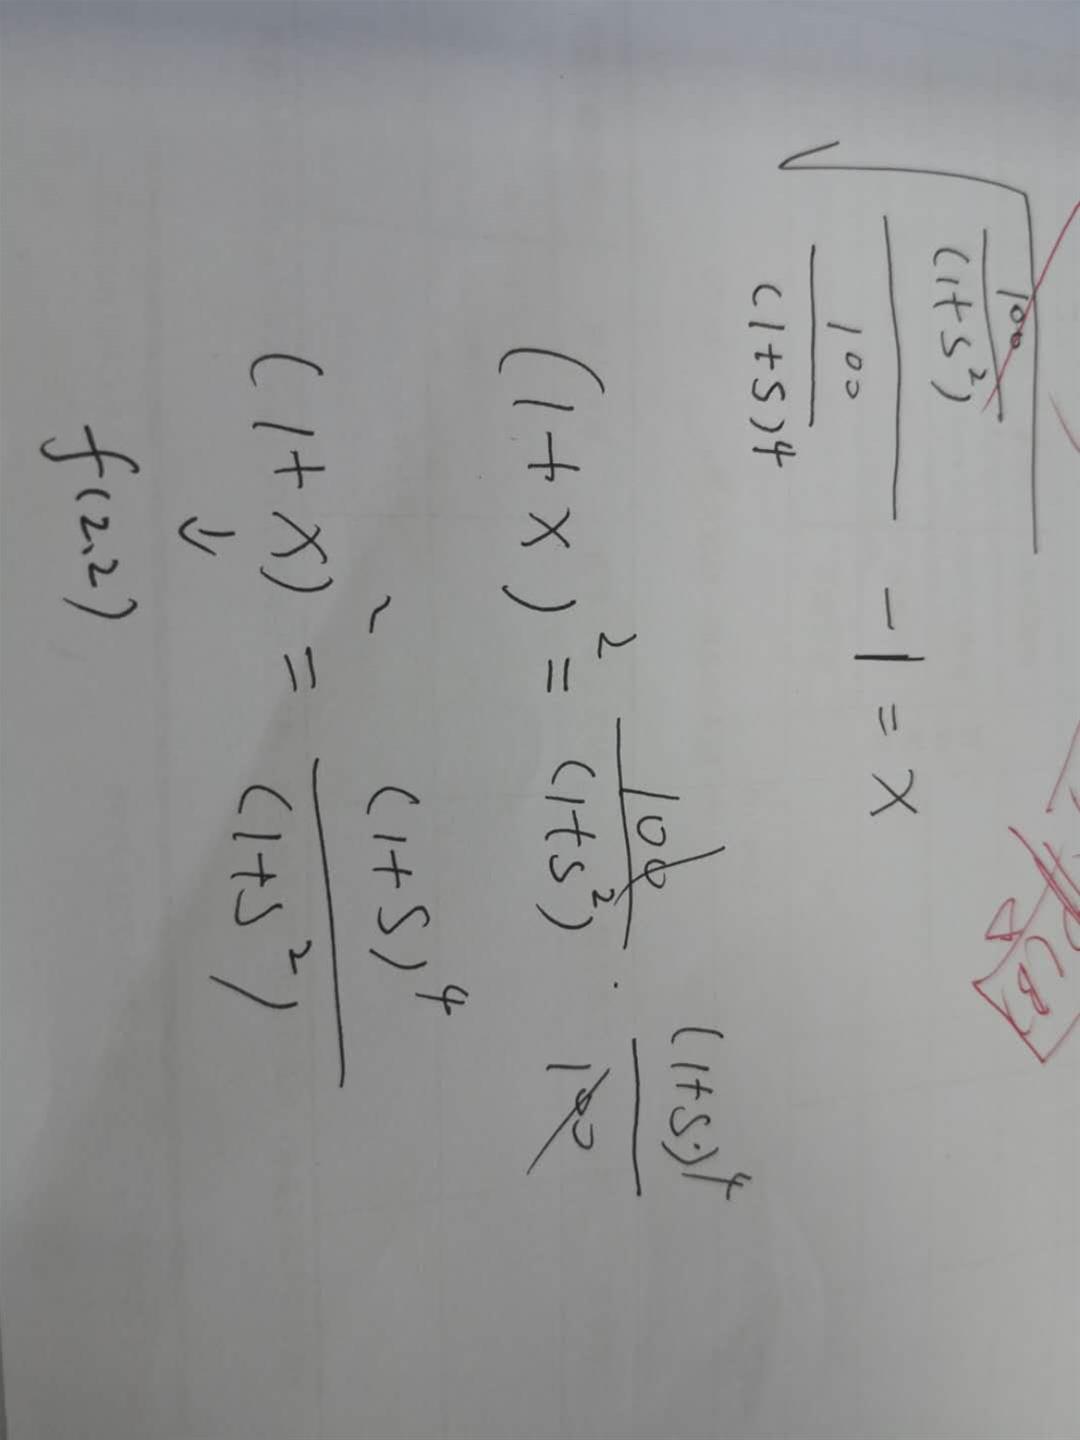 √((100/(1+S²))/(100/(1+S)⁴)) − 1 = X
(1+X)² = 100/(1+S²) · (1+S)⁴/100
(1+X)² = (1+S)⁴/(1+S²)
↓
f(2,2)